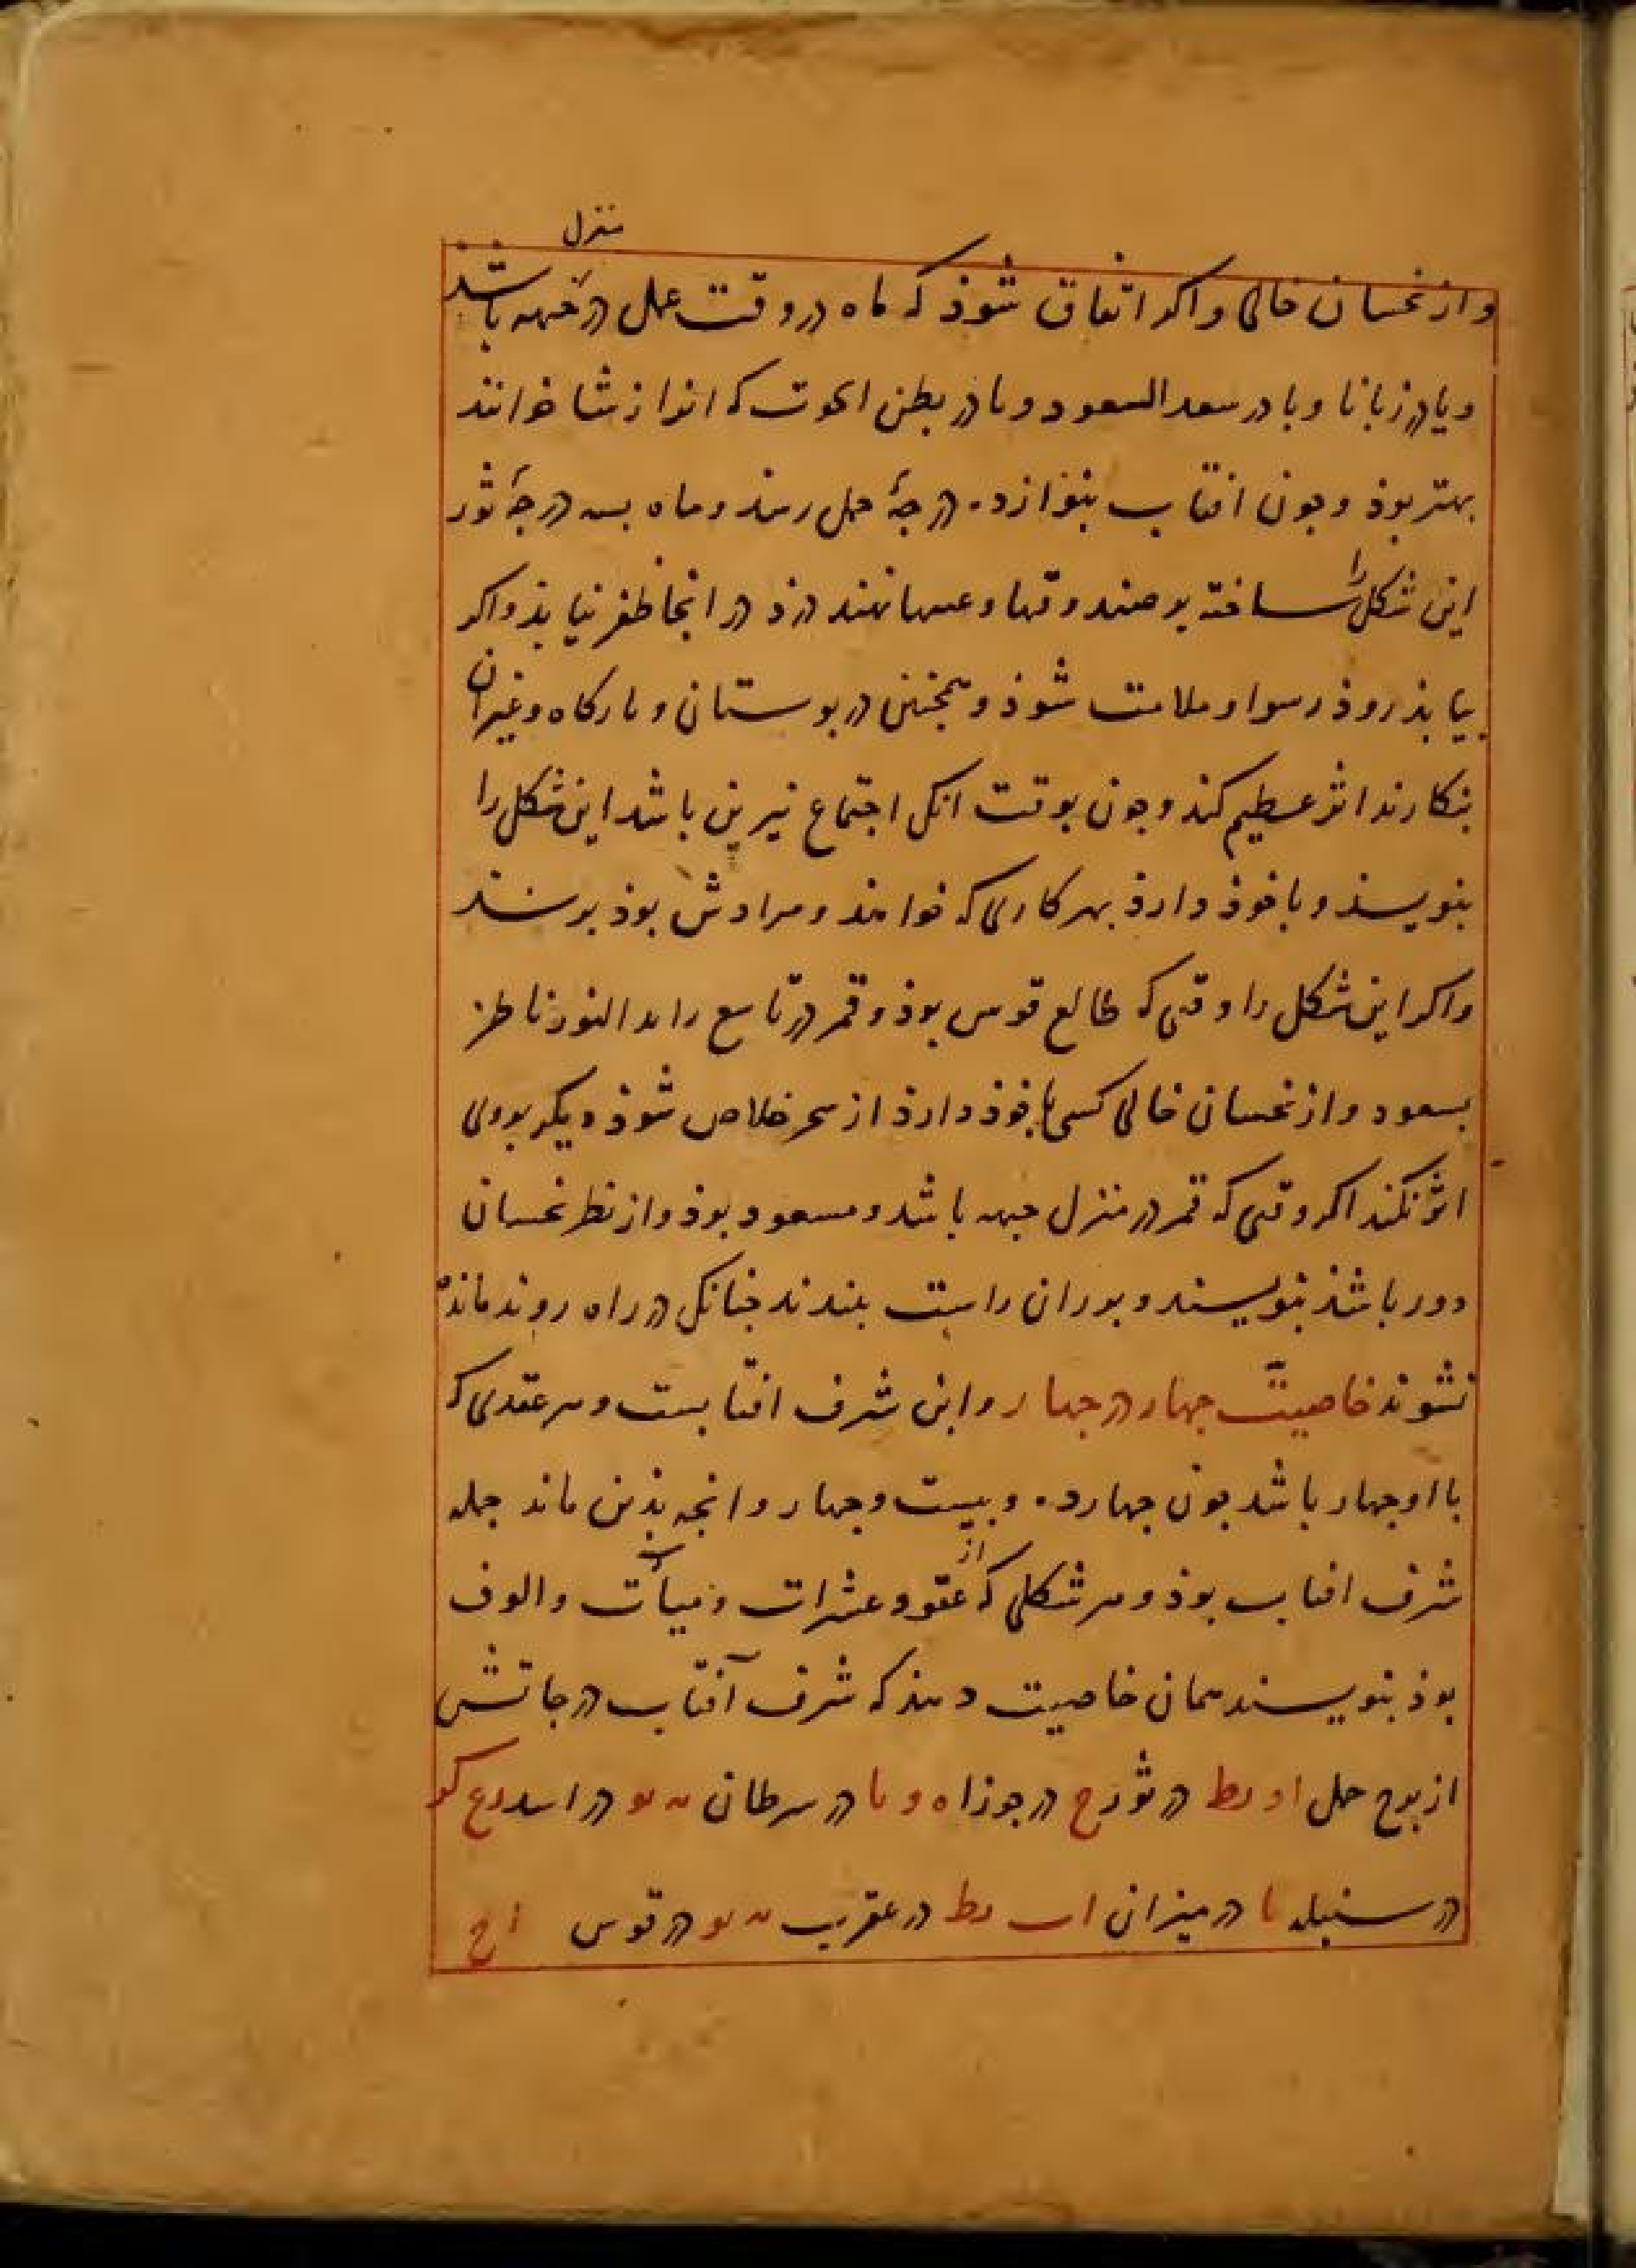 منزل
واز نحسان خالی واکر اتفاق شوذ که ماه در وقت عمل در جبهه باشد
ویا در زبانا ویا در سعد السعود ویا در بطن الحوت که انرا رشا خوانند
بهتر بوذ وجون افتاب بنوازده درجهٔ حمل رسد وماه بسه درجهٔ ثور
این شکل را ساخته بر صندوقها و نهند دزد در انجا ظفر نیابذ واکر
بیابذ زوذ رسوا وملامت شوذ وهمجنین در بوستان وبارکاه وغیر ان
بنکارند اثر عظیم کند وجون بوقت انک اجتماع نیرین باشد این شکل را
بنویسند وبا خوذ دارذ بهر کاری که خواهد ومرادش بوذ برسد
واکر این شکل را وقتی که طالع قوس بوذ وقمر در تاسع زاید النور ناظر
بسعود واز نحسان خالی کسی با خوذ دارذ از سحر خلاص شوذ دیکر بروی
اثر نکند اکر وقتی که قمر در منزل جبهه باشد ومسعود بوذ واز نظر نحسان
دور باشذ بنویسند وبر ران راست بندند جنانک در راه روند مانده
نشوند خاصیت جهار در جهار واین شرف افتابست وهر عقدی که
با او جهار باشد جون جهارده وبیست وجهار وانجه بذین ماند جمله
شرف افتاب بوذ وهر شکلی که از عقود عشرات ومیآت والوف
بوذ بنویسند همان خاصیت دهند که شرف آفتاب درجاتش
از برج حمل او یط در ثور ح در جوزا ه و یا در سرطان یو در اسد
در سنبله یا در میزان یط در عقرب یو در قوس